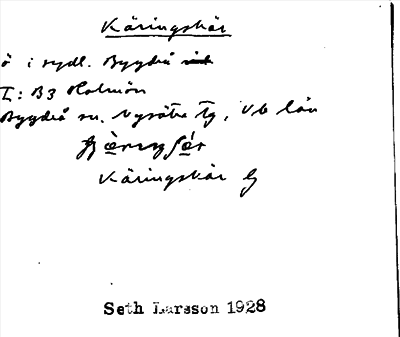 Käringskär
ö i sydl. Bygdeå
I: B3 Holmön
Bygdeå sn. Nysätra tg, Vb län
Käringskär
Seth Larsson 1928